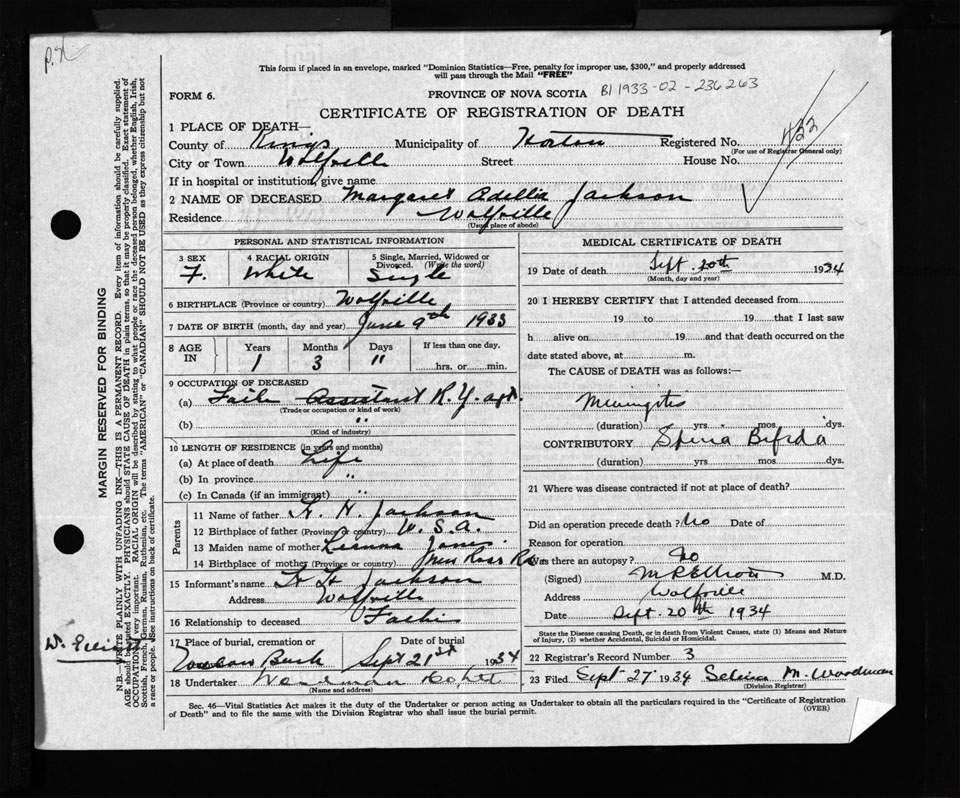 This form if placed in an envelope, marked "Dominion Statistics—Free, penalty for improper use, $300," and properly addressed
will pass through the Mail "FREE"
FORM 6.
PROVINCE OF NOVA SCOTIA B1 1933-02-236263
CERTIFICATE OF REGISTRATION OF DEATH
1 PLACE OF DEATH—
County of Kings Municipality of Horton Registered No. 422
(For use of Registrar General only)
City or Town Wolfville Street House No.
If in hospital or institution, give name
2 NAME OF DECEASED Margaret Adella Jackson
Residence Wolfville
(Usual place of abode)
PERSONAL AND STATISTICAL INFORMATION
3 SEX 4 RACIAL ORIGIN 5 Single, Married, Widowed or
Divorced. (Write the word)
F. White Single
6 BIRTHPLACE (Province or country) Wolfville
7 DATE OF BIRTH (month, day and year) June 9th 1933
8 AGE IN Years Months Days If less than one day,
1 3 11 hrs. or min.
9 OCCUPATION OF DECEASED
(a) Assistant R.Y. agt.
(Trade or occupation or kind of work)
(b) "
(Kind of industry)
10 LENGTH OF RESIDENCE (in years and months)
(a) At place of death Life
(b) In province "
(c) In Canada (if an immigrant) "
Parents
11 Name of father H. Jackson
12 Birthplace of father (Province or country) U.S.A.
13 Maiden name of mother
14 Birthplace of mother (Province or country)
15 Informant's name H Jackson
Address Wolfville
16 Relationship to deceased Father
17 Place of burial, cremation or Date of burial
Sept 21st 1934
18 Undertaker
(Name and address)
MEDICAL CERTIFICATE OF DEATH
19 Date of death Sept. 20th 1934
(Month, day and year)
20 I HEREBY CERTIFY that I attended deceased from
19 to 19 that I last saw
h alive on 19 and that death occurred on the
date stated above, at m.
The CAUSE of DEATH was as follows:—
Meningitis
(duration) yrs. mos. dys.
CONTRIBUTORY Spina Bifida
(duration) yrs mos dys.
21 Where was disease contracted if not at place of death?
Did an operation precede death? No Date of
Reason for operation
Was there an autopsy? No
(Signed) M.D.
Address Wolfville
Date Sept. 20th 1934
State the Disease causing Death, or in death from Violent Causes, state (1) Means and Nature
of Injury, (2) whether Accidental, Suicidal or Homicidal.
22 Registrar's Record Number 3
23 Filed Sept 27 1934 M. Woodman
(Division Registrar)
Sec. 46—Vital Statistics Act makes it the duty of the Undertaker or person acting as Undertaker to obtain all the particulars required in the "Certificate of Registration
of Death" and to file the same with the Division Registrar who shall issue the burial permit. (OVER)
MARGIN RESERVED FOR BINDING
N.B.—WRITE PLAINLY WITH UNFADING INK—THIS IS A PERMANENT RECORD. Every item of information should be carefully supplied.
AGE should be stated EXACTLY. PHYSICIANS should STATE CAUSE OF DEATH in plain terms, so that it may be properly classified. Exact statement of
OCCUPATION is very important. RACIAL ORIGIN will be described by stating to what people or race the deceased person belonged, whether English, Irish,
Scottish, French, German, Russian, Ruthenian, etc. The terms "AMERICAN" or "CANADIAN" SHOULD NOT BE USED as they express citizenship but not
a race or people. See instructions on back of certificate.